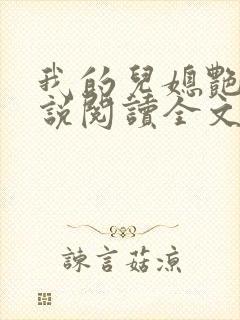 我的兒媳艷
說閱讀全文
諫言菇凉